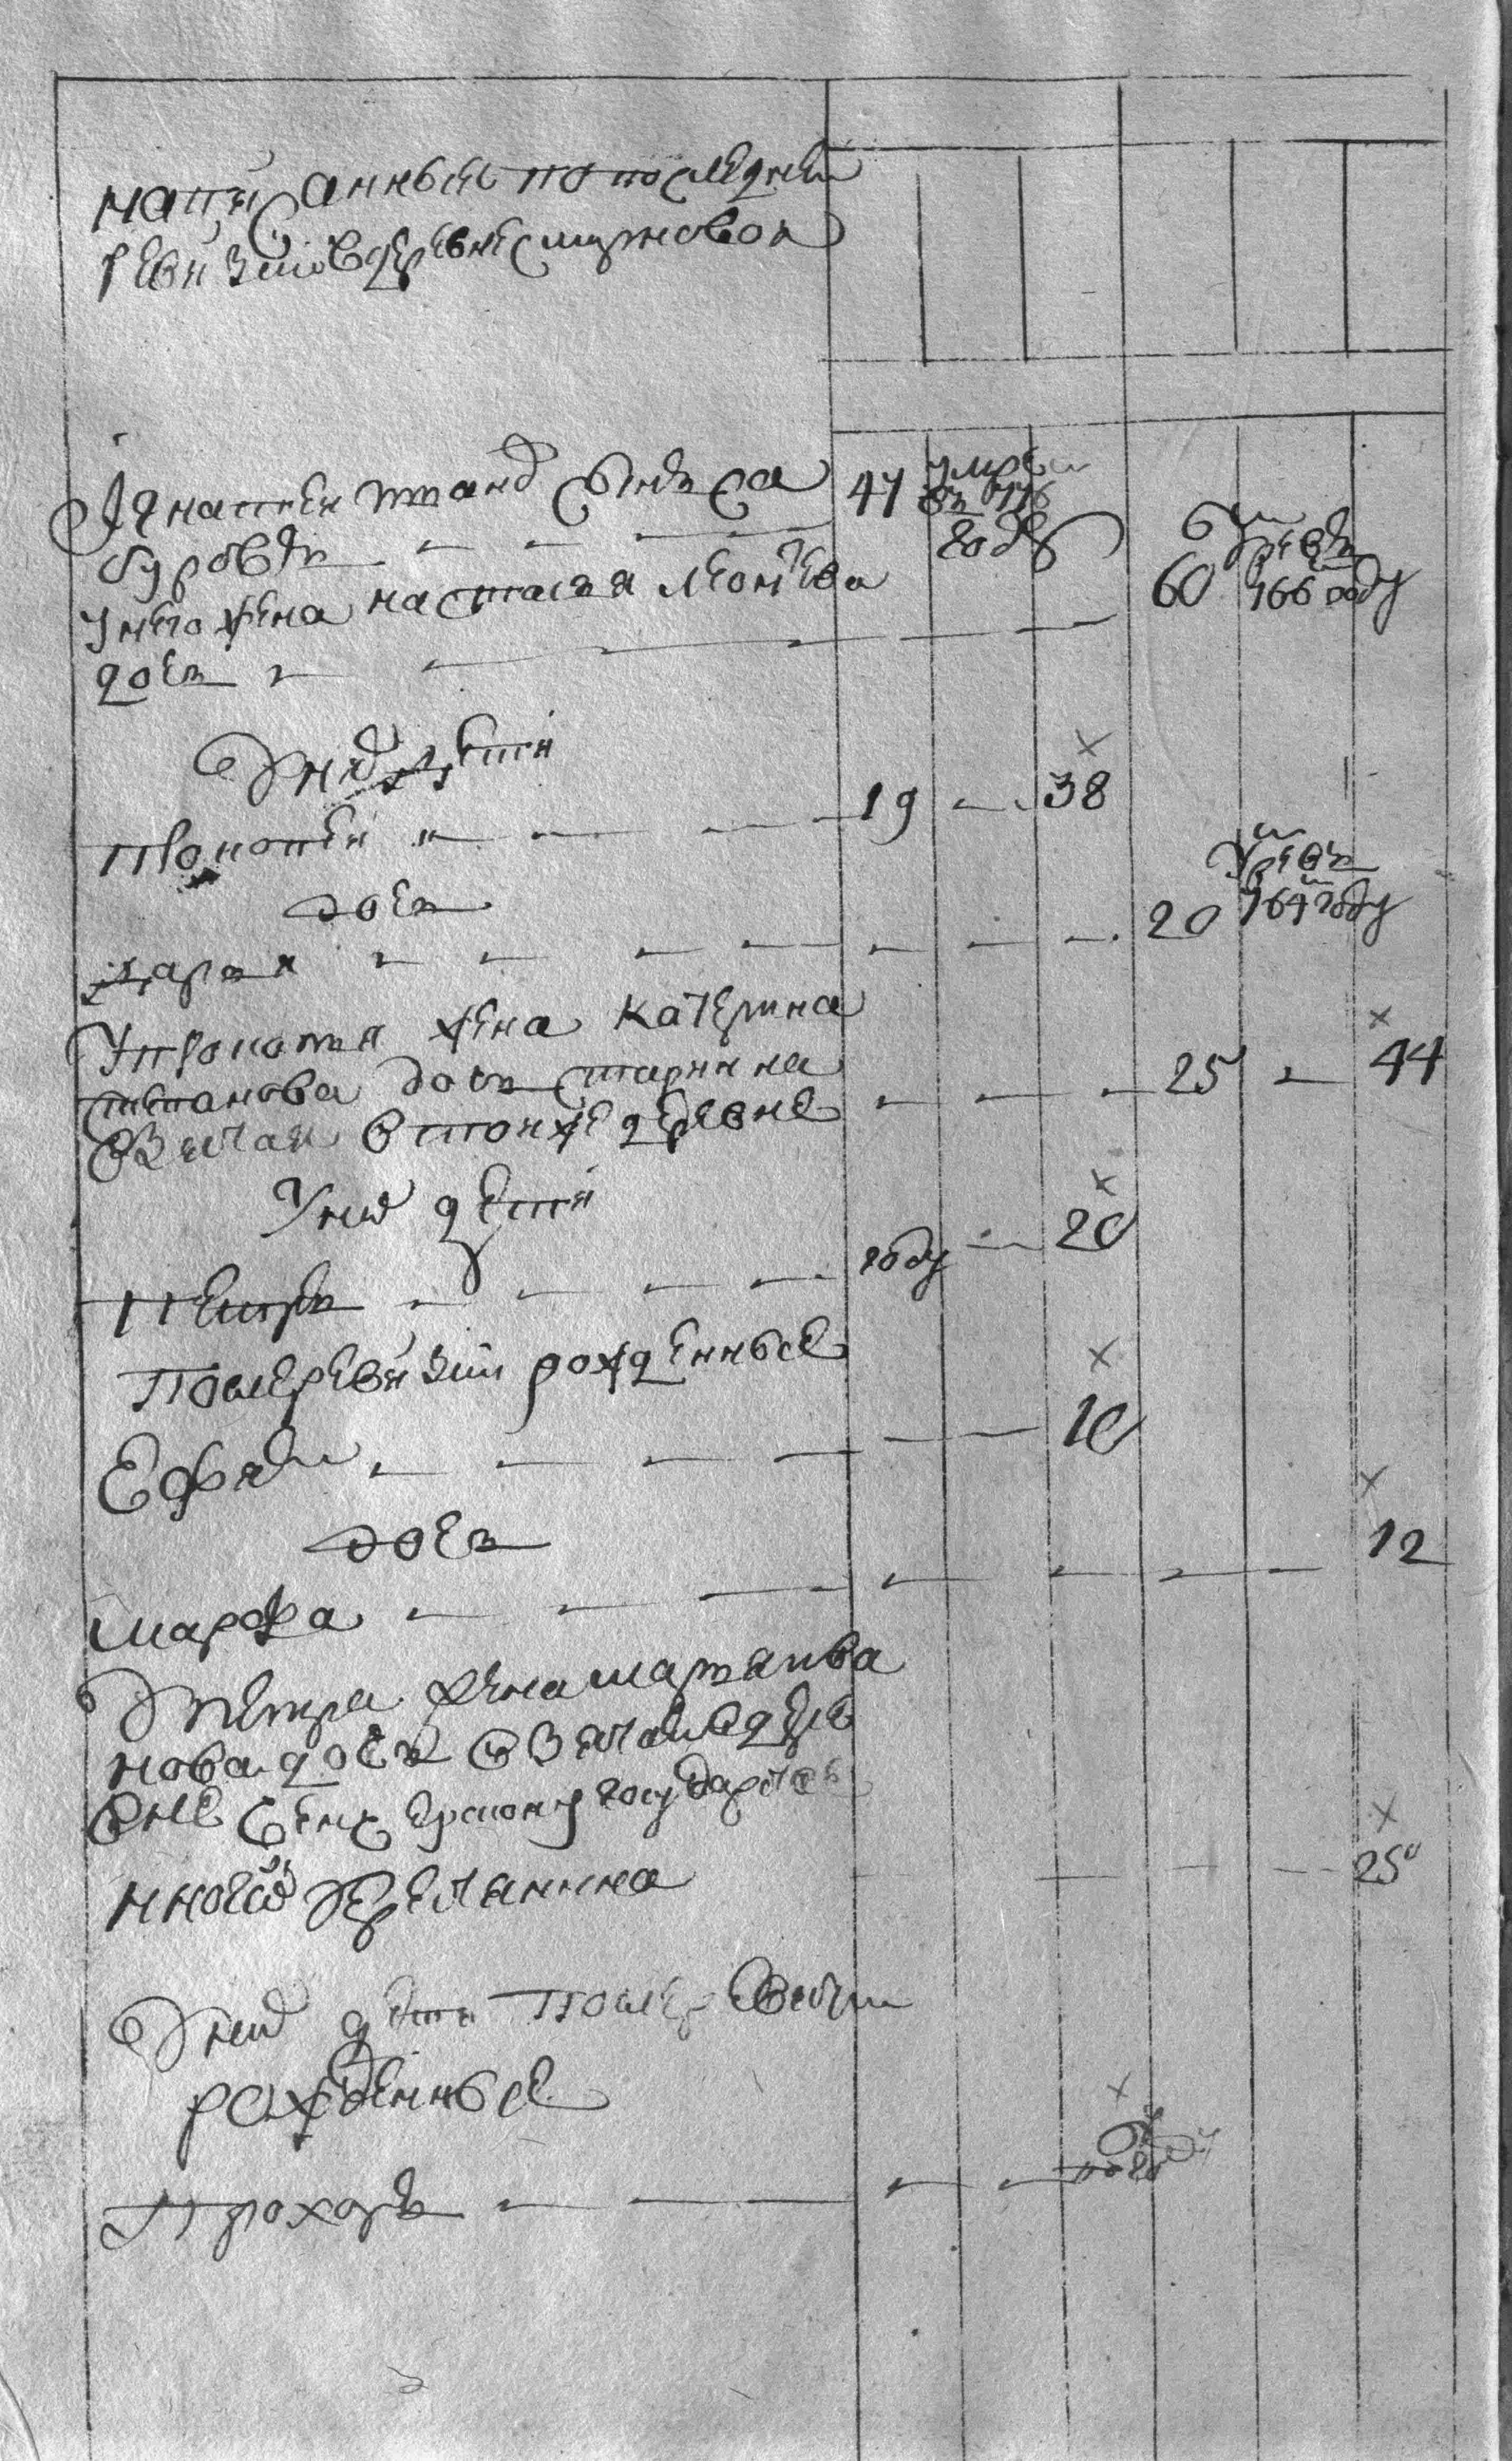 написанныя по последней
ревизии в деревне Смирновой
Игнатей Степанов сын Са
буровъ 47 умре въ 776 году
у него жена Наталья Леонтьева
дочь 60 умре въ 766 году
у них дети
Прокопей 19 38
дочь
Дарья 20 умре въ 764 году
у Прокопья жена Катерина
Степанова дочь старинна
взятая в той же деревне 25 44
у них дети
Петръ году 20
после ревизии рожденные
Ефим 10
дочь
Марфа 12
у Петра жена
нова дочь взятая в дерев
не государстве
нного крестьянина 25
у них дети после ревизии
рожденные
Прохоръ